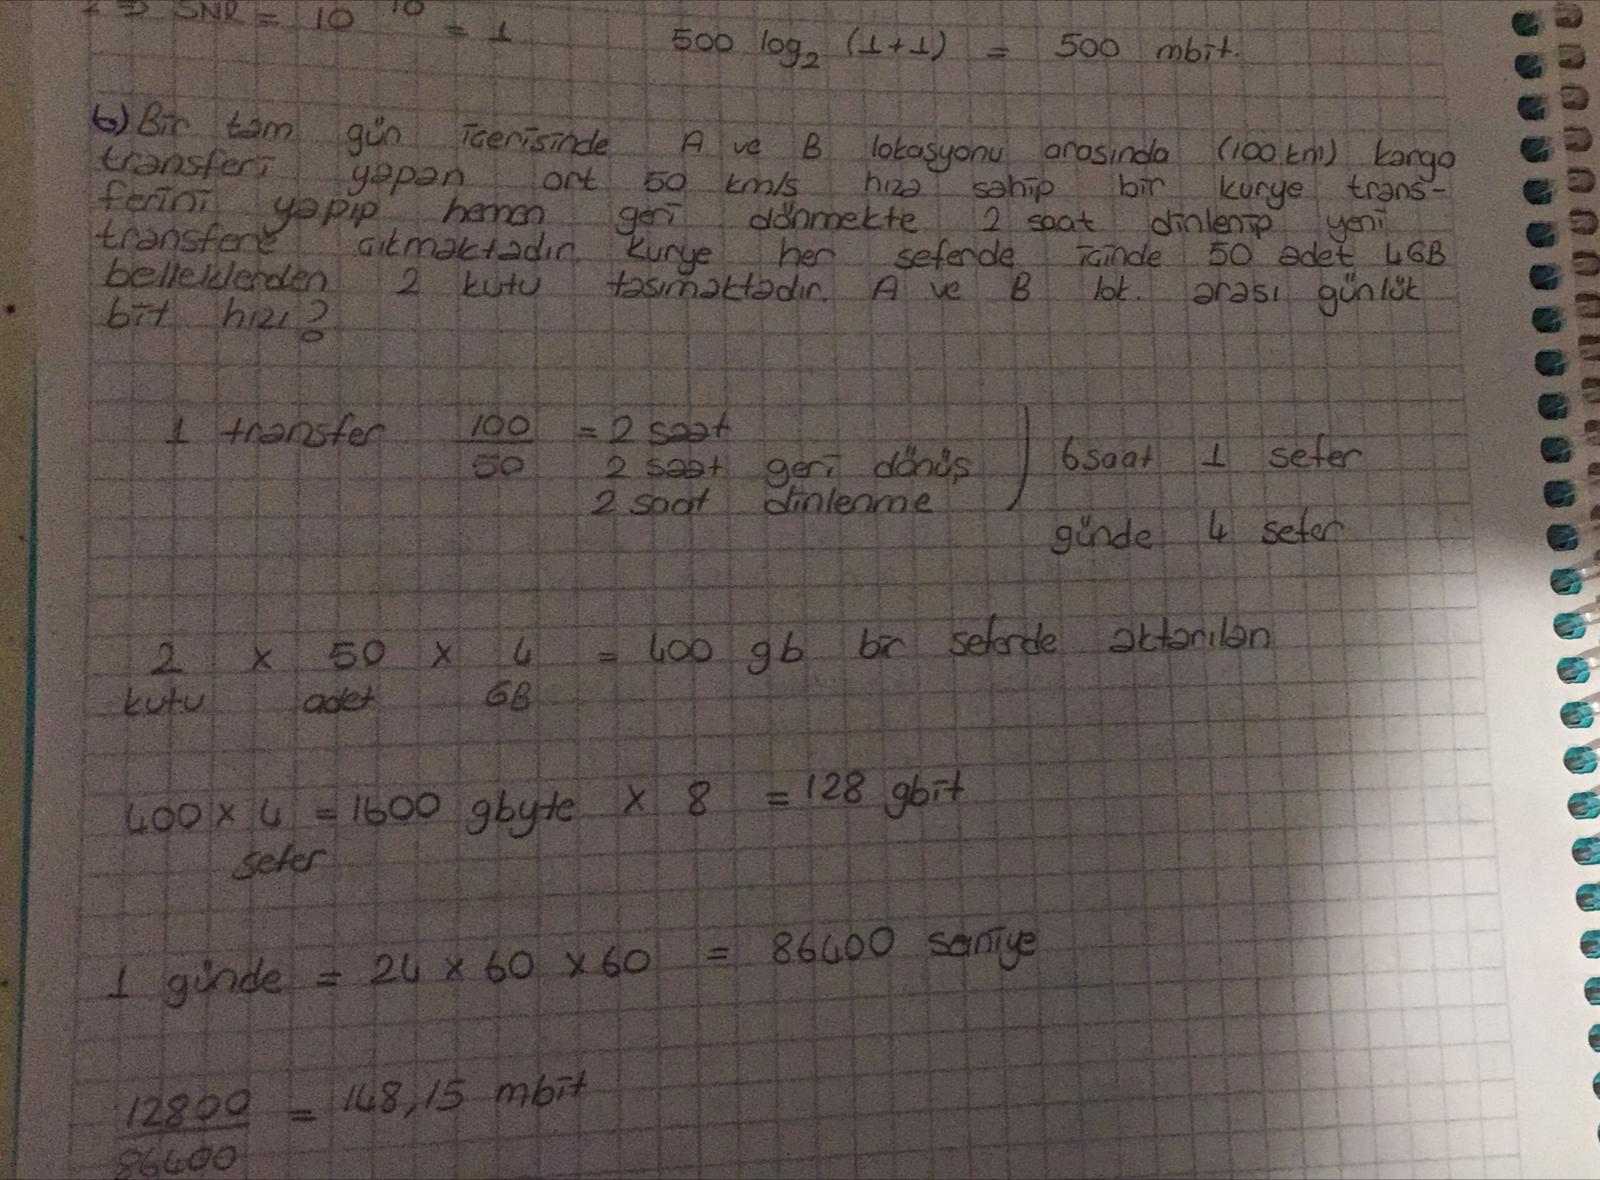 2 => SNR = 10 10 = 1 500 log2 (1+1) = 500 mbit.
6) Bir tam gün içerisinde A ve B lokasyonu arasında (100 km) kargo
transferi yapan ort 50 km/s hıza sahip bir kurye trans-
ferini yapıp hemen geri dönmekte 2 saat dinlenip yeni
transfere çıkmaktadır. Kurye her seferde içinde 50 adet 4GB
belleklerden 2 kutu taşımaktadır. A ve B lok. arası günlük
bit hızı?
1 transfer 100 = 2 saat
50 2 saat geri dönüş ) 6saat 1 sefer
2 saat dinlenme
günde 4 sefer
2 x 50 x 4 = 400 gb bir seferde aktarılan
kutu adet GB
400 x 4 = 1600 gbyte x 8 = 128 gbit
sefer
1 günde = 24 x 60 x 60 = 86400 saniye
12800 = 148,15 mbit
86400